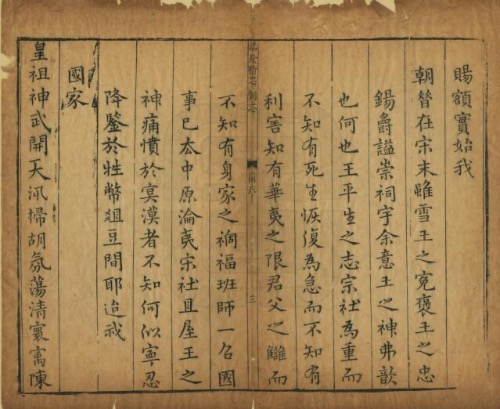 賜額實始我
朝在宋末雖雪王之寃褒王之忠
錫爵謚崇祠宇余意王之神弗歆
也何也王平生之志宗社為重而
不知有死生恢復為急而不知有
利害知有華夷之限君父之讎而
三
不知有身家之禍福班師一召國
事已太中原淪夷宋社且屋王之
神痛憤於冥漠者不知何似寧忍
降鑒於牲幣俎豆間耶迨我
國家
皇祖神武開天汛掃胡氛蕩清寰㝢陳